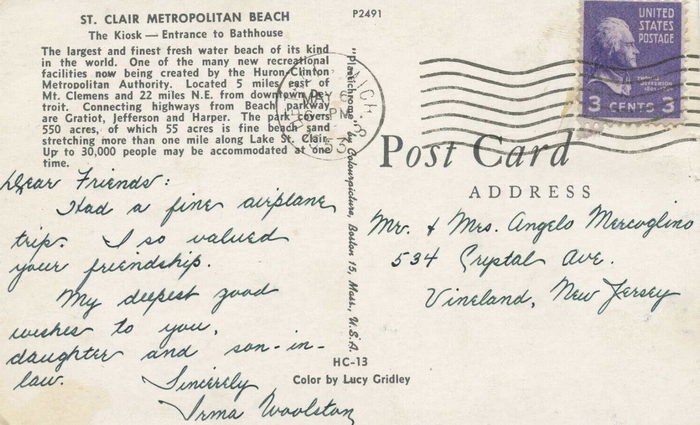 ST. CLAIR METROPOLITAN BEACH
The Kiosk — Entrance to Bathhouse
The largest and finest fresh water beach of its kind
in the world. One of the many new recreational
facilities now being created by the Huron-Clinton
Metropolitan Authority. Located 5 miles east of
Mt. Clemens and 22 miles N.E. from downtown De-
troit. Connecting highways from Beach parkway
are Gratiot, Jefferson and Harper. The park covers
550 acres, of which 55 acres is fine beach sand
stretching more than one mile along Lake St. Clair.
Up to 30,000 people may be accommodated at one
time.
Dear Friends:
Had a fine airplane
trip. I so valued
your friendship.
My deepest good
wishes to you,
daughter and son-in-
law.
Sincerely
Irma Woolston
P2491
"Plastichrome" by Colourpicture, Boston 15, Mass., U.S.A.
HC-13
Color by Lucy Gridley
MICH.
MAY 6
PM
UNITED
STATES
POSTAGE
THOMAS
JEFFERSON
3 CENTS 3
Post Card
ADDRESS
Mr. & Mrs. Angelo Mercoglino
534 Crystal Ave.
Vineland, New Jersey